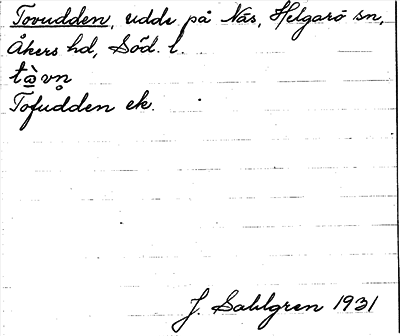 Tovudden, udde på Näs, Helgarö sn,
Åkers hd, Söd. l.
tàvn̥
Tofudden ek.
J. Sahlgren 1931